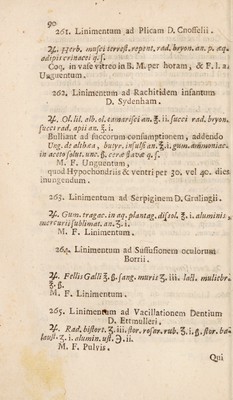 90
261. Linimentum ad Plicam D. Cnoffelii.
℞. ggerb. musci terrest. repent. rad. bryon. an. p. æq.
adipis erinacei q. s.
Coq. in vase vitreo in B. M. per horam, & F. l. a.
Unguentum.
262. Linimentum ad Rachitidem infantum
D. Sydenham.
℞. Ol. lil. alb. ol. camœmeli an. ℥. ii. succi rad. bryon.
succi rad. apii an. ℥. i.
Bulliant ad succorum consumptionem, addendo
Ung. de althæa, butyr. insulsi an. ℥. i. gum. ammoniac.
in aceto solut. unc. ß. ceræ flavæ q. s.
M. F. Unguentum,
quod Hypochondriis & ventri per 30. vel 40. dies
inungendum.
263. Linimentum ad Serpiginem D. Gralingii.
℞. Gum. tragac. in aq. plantag. dissol. ℥. i. aluminis,
mercurii sublimat. an. ʒ. i.
M. F. Linimentum.
264. Linimentum ad Suffusionem oculorum
Borrii.
℞. Fellis Galli ℥. ß. sang. muris ʒ. iii. lact. muliebr.
℥. ß.
M. F. Linimentum.
265. Linimentum ad Vacillationem Dentium
D. Ettmulleri.
℞. Rad. bistort. ʒ. iii. flor. rosar. rub. ʒ. i. ß. flor. ba-
laust. ʒ. i. alumin. ust. ℈. ii.
M. F. Pulvis.
Qui